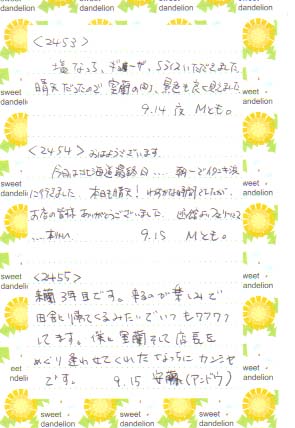 <2453>
塩なっとう、ギョーザ、いただきました
晴天だったので室蘭の町、景色も良く見えました
9.14 夜 Mとも。
<2454> おはようございます
今日は北海道最終日… 朝一でイタンキ浜
に行きました 本日も晴天! わずかな時間でしたが、
お店の皆様 ありがとうございました
9.15 Mとも。
<2455>
来蘭3年目です。来るのが楽しみで
田舎に帰ってくるみたいでいつもワクワク
してます。僕に室蘭そして店長を
めぐり逢わせてくれたなっちにカンシャ
です。 9.15 安藤(アンドウ)
sweet dandelion
sweet dandelion
sweet dandelion
sweet dandelion
sweet dandelion
sweet dandelion
sweet dandelion
sweet dandelion
sweet dandelion
sweet dandelion